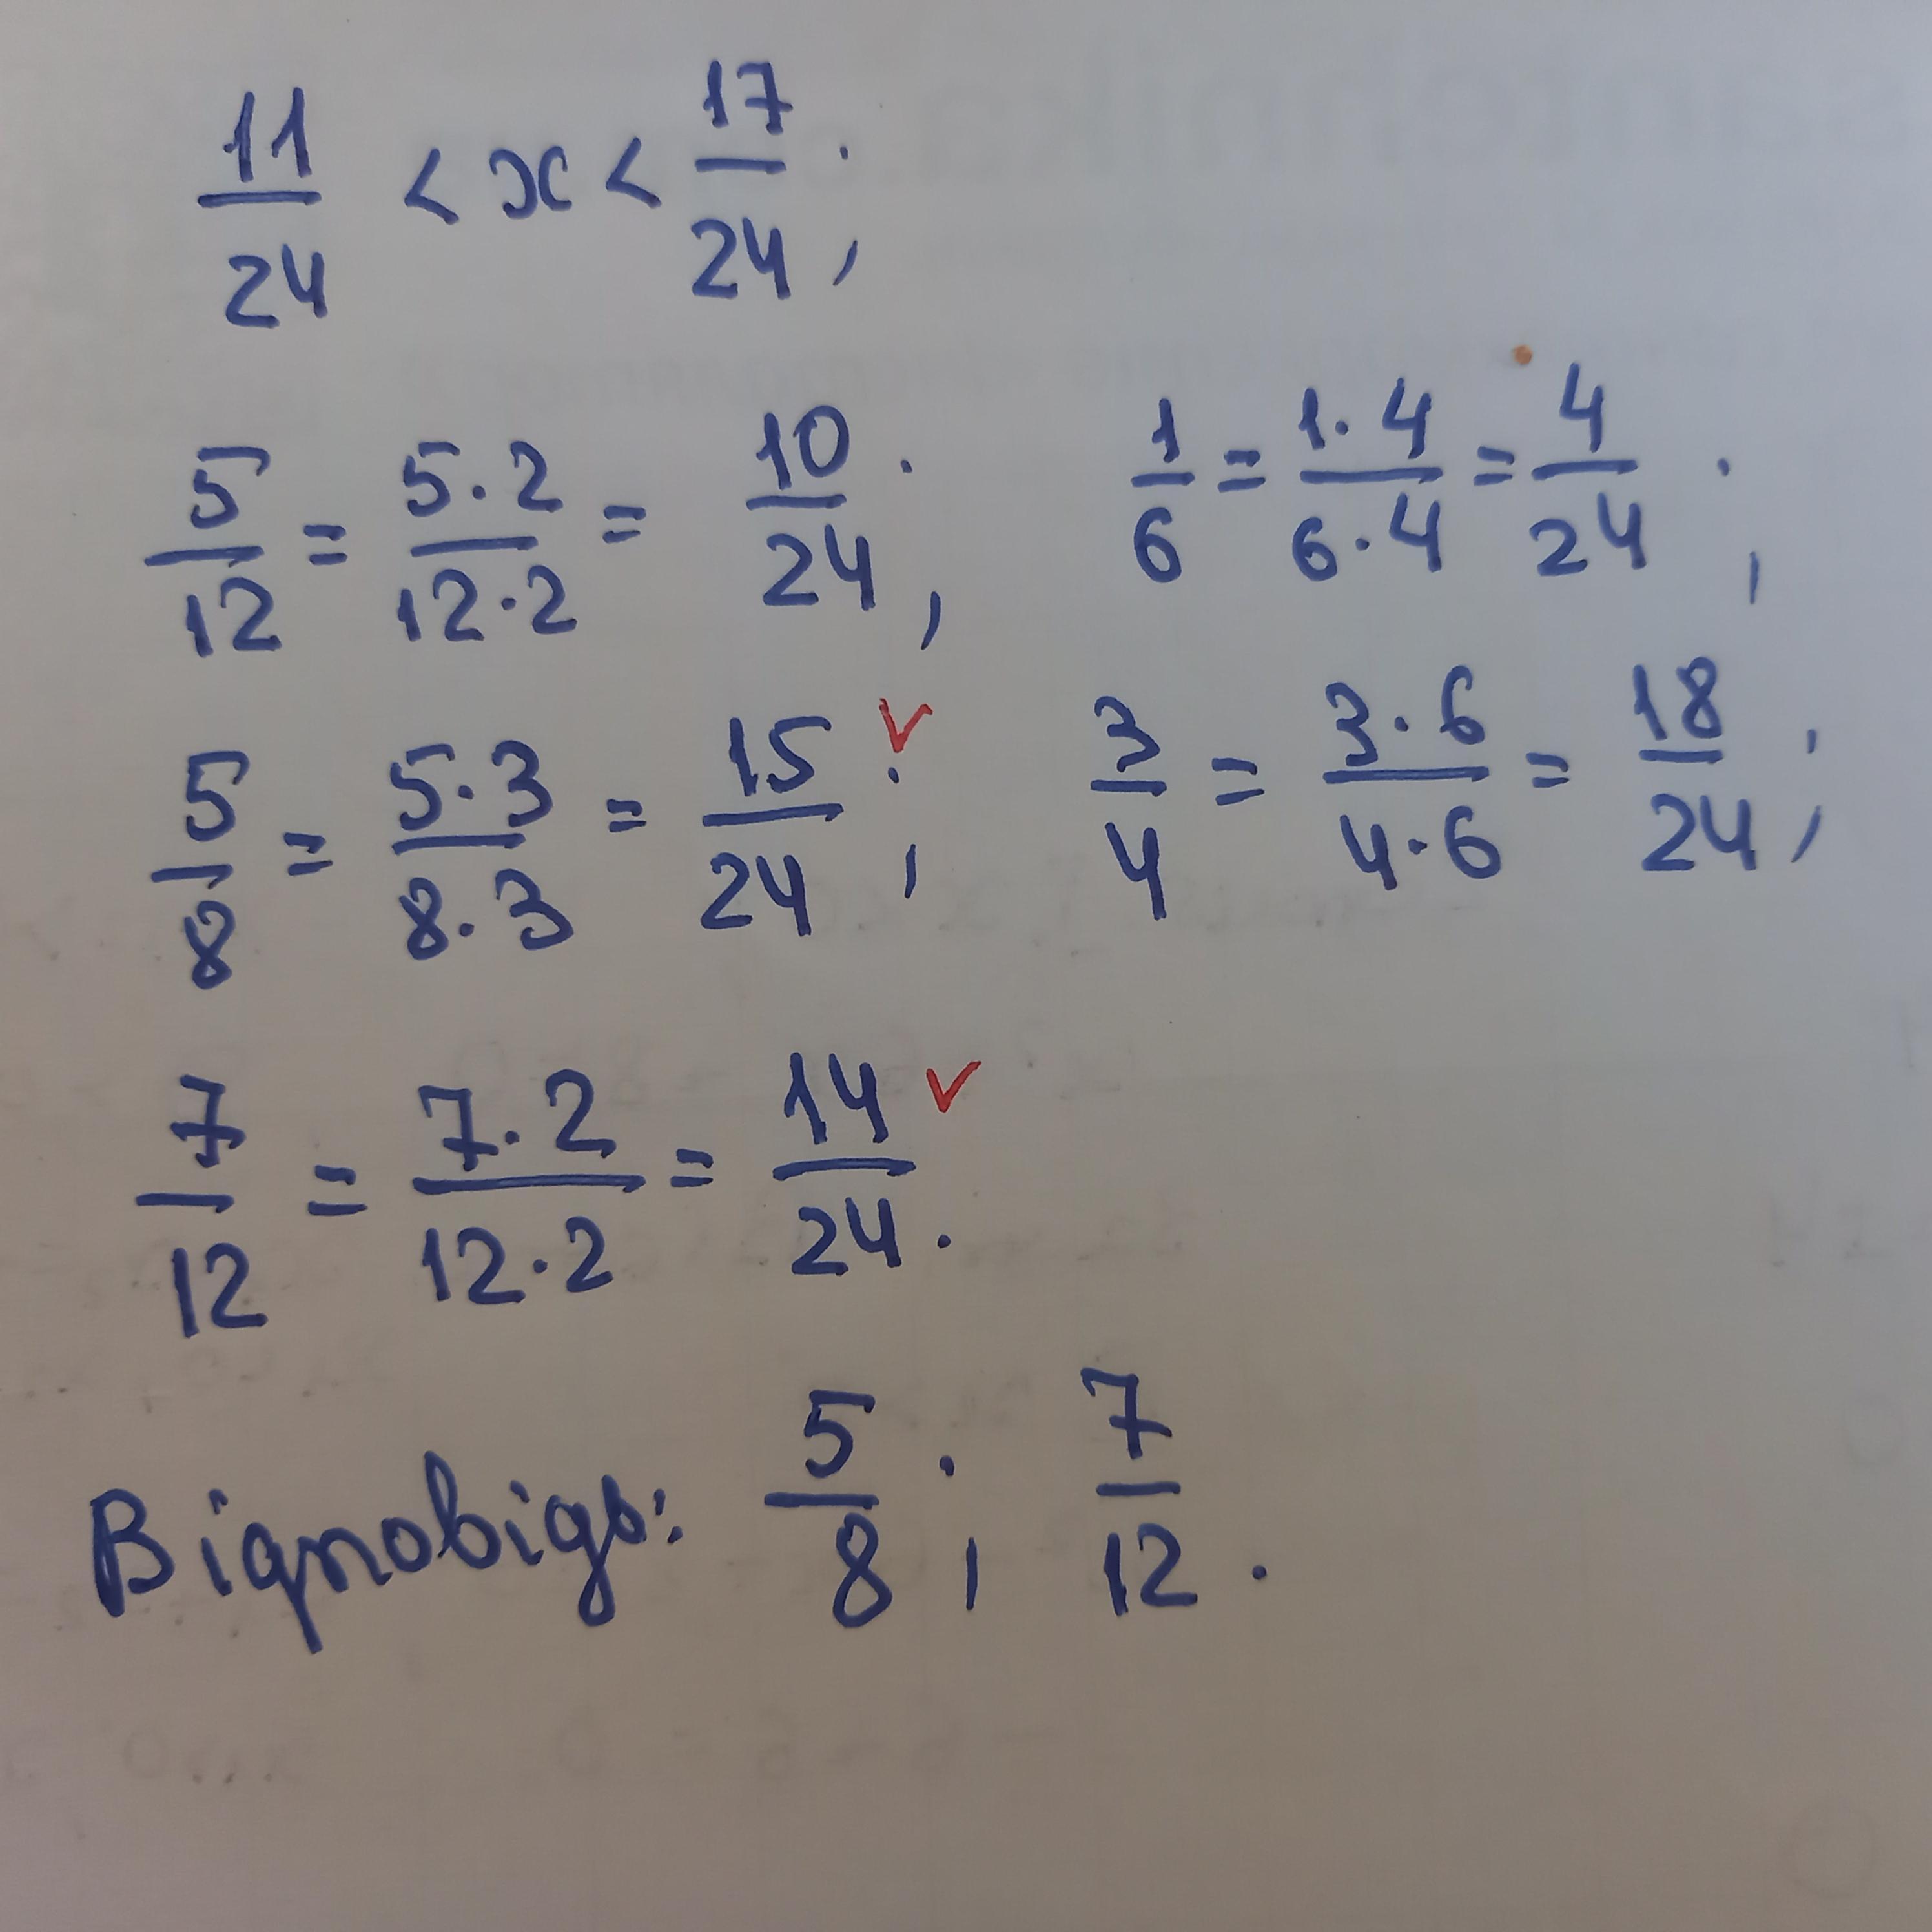 11/24 < x < 17/24;
5/12 = 5·2/12·2 = 10/24; 1/6 = 1·4/6·4 = 4/24;
5/8 = 5·3/8·3 = 15/24; ✓ 3/4 = 3·6/4·6 = 18/24;
7/12 = 7·2/12·2 = 14/24. ✓
Відповідь: 5/8; 7/12.